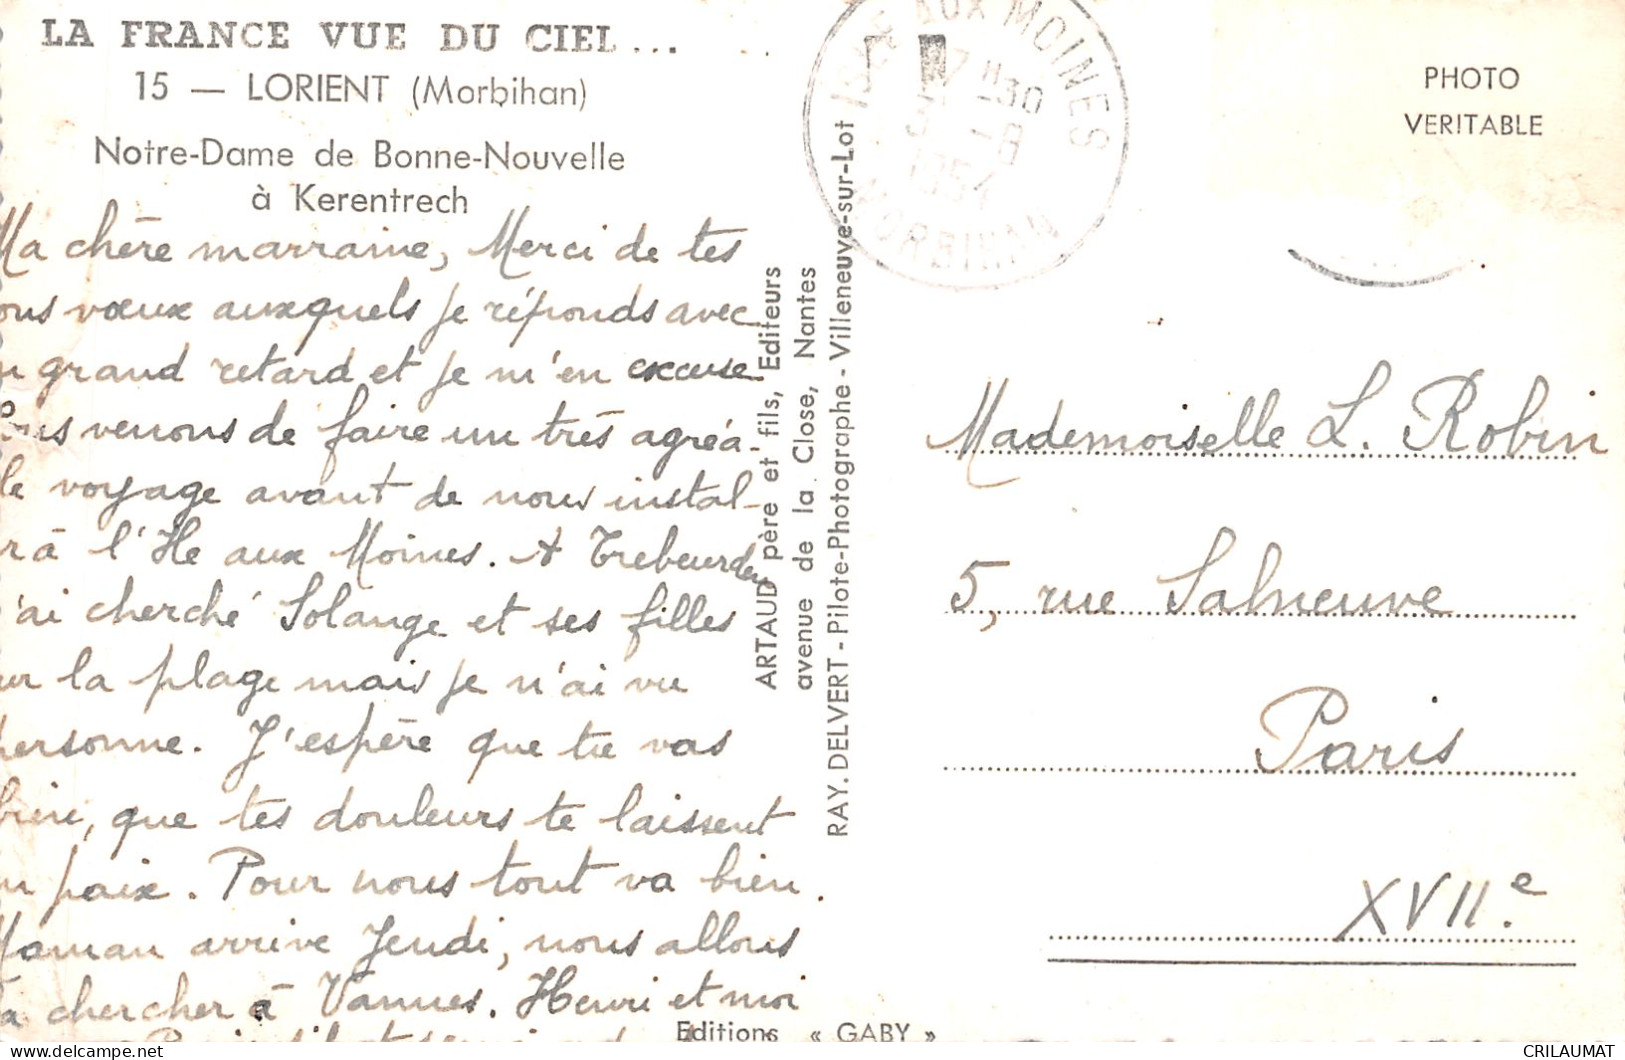 LA FRANCE VUE DU CIEL...
15 — LORIENT (Morbihan)
Notre-Dame de Bonne-Nouvelle
à Kerentrech
Ma chère marraine, Merci de tes
vœux auxquels je réponds avec
grand retard et je m'en excuse
venons de faire un très agréa-
voyage avant de nous instal-
à l'Ile aux Moines. A Trebeurden
j'ai cherché Solange et ses filles
sur la plage mais je n'ai vu
personne. J'espère que tu vas
bien, que tes douleurs te laissent
en paix. Pour nous tout va bien.
Maman arrive Jeudi, nous allons
la chercher à Vannes. Henri et moi
ARTAUD père et fils, Editeurs
avenue de la Close, Nantes
RAY. DELVERT - Pilote-Photographe - Villeneuve-sur-Lot
Editions « GABY »
AUX MOINES
1954
MORBIHAN
PHOTO
VERITABLE
Mademoiselle L. Robin
5, rue Salneuve
Paris
XVIIe.
CRILAUMAT